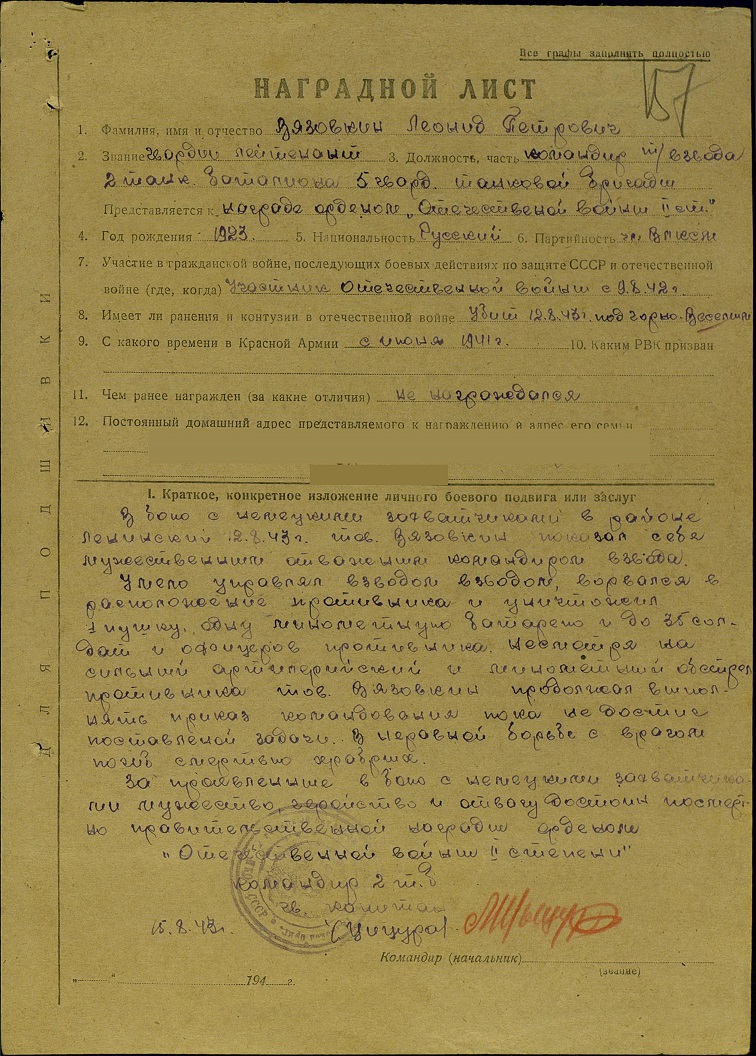 Все графы заполнять полностью
157
НАГРАДНОЙ ЛИСТ
1. Фамилия, имя и отчество Вязовкин Леонид Петрович
2. Звание гвардии лейтенант 3. Должность, часть командир т/взвода
2 танк. баталиона 5 гвард. танковой бригады
Представляется к награде орденом „Отечественой войны II ст."
4. Год рождения 1923. 5. Национальность Русский 6. Партийность чл ВЛКСМ
7. Участие в гражданской войне, последующих боевых действиях по защите СССР и отечественной
войне (где, когда) Участник Отечественой войны с 9.8.42 г.
8. Имеет ли ранения и контузии в отечественной войне Убит 12.8.43 г. под Горно-Веселый
9. С какого времени в Красной Армии с июня 1941 г. 10. Каким РВК призван
11. Чем ранее награжден (за какие отличия) не награждался
12. Постоянный домашний адрес представляемого к награждению и адрес его семьи
I. Краткое, конкретное изложение личного боевого подвига или заслуг
В бою с немецкими захватчиками в районе
Ленинский 12.8.43 г. тов. Вязовкин показал себя
мужественным отважным командиром взвода.
Умело управлял взводом взводом, ворвался в
расположение противника и уничтожил
1 пушку, одну минометную батарею и до 35 сол-
дат и офицеров противника. Несмотря на
сильный артилерийский и минометный обстрел
противника тов. Вязовкин продолжал выпол-
нять приказ командования пока не достиг
поставленой задачи. В неравной борьбе с врагом
погиб смертью храбрых.
За проявленные в бою с немецкими захватчика-
ми мужество, геройство и отвагу достоин посмерт-
но правительственной награды орденом
„Отечественной войны II степени"
Командир 2 т.б
гв. капитан
15.8.43 г. (Цицура)
Командир (начальник)
(звание)
„ " 194 г
ДЛЯ ПОДШИВКИ